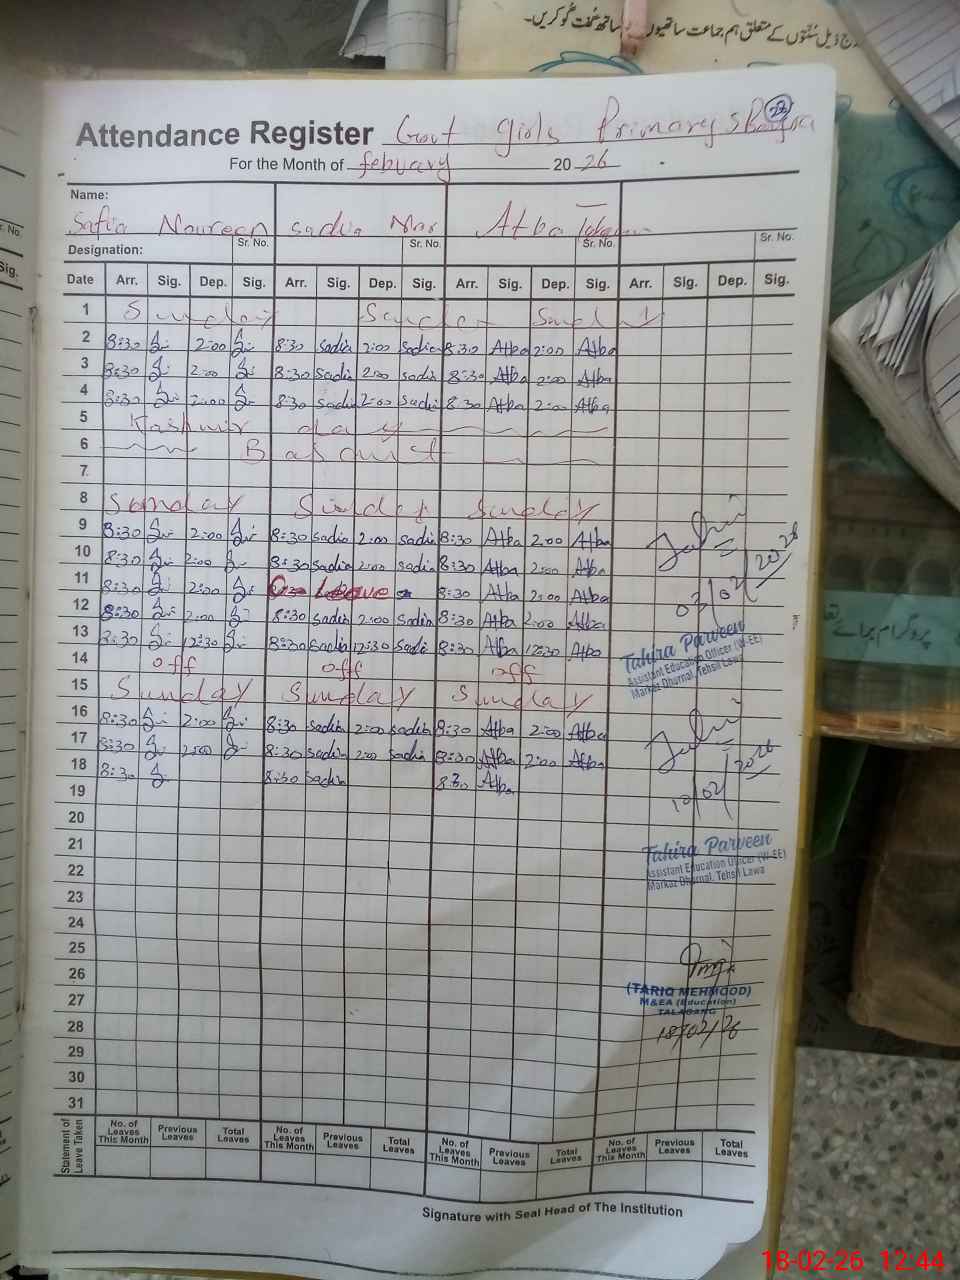 درج ذیل سُنّتوں کے متعلق ہم جماعت ساتھیوں کے ساتھ گفت گو کریں۔
22
Attendance Register Govt girls Primary S
For the Month of febuary 2026
Name:
Safia Noureen sadia Atba
Sr. No. Sr. No. Sr. No. Sr. No.
Designation:
Date Arr. Sig. Dep. Sig. Arr. Sig. Dep. Sig. Arr. Sig. Dep. Sig. Arr. Sig. Dep. Sig.
1 Sunday Sunday Sunday
2 8:30 2:00 8:30 sadia 2:00 sadia 8:30 Atba 2:00 Atba
3 8:30 2:00 8:30 sadia 2:00 sadia 8:30 Atba 2:00 Atba
4 8:30 2:00 8:30 sadia 2:00 sadia 8:30 Atba 2:00 Atba
5 Kashmir day
6 Basant
7
8 Sunday Sunday Sunday
9 8:30 2:00 8:30 sadia 2:00 sadia 8:30 Atba 2:00 Atba
10 8:30 2:00 8:30 sadia 2:00 sadia 8:30 Atba 2:00 Atba
11 8:30 2:00 On Leave 8:30 Atba 2:00 Atba
12 8:30 2:00 8:30 sadia 2:00 sadia 8:30 Atba 2:00 Atba
13 8:30 12:30 8:30 sadia 12:30 sadia 8:30 Atba 12:30 Atba
14 off off off
15 Sunday Sunday Sunday
16 8:30 2:00 8:30 sadia 2:00 sadia 8:30 Atba 2:00 Atba
17 8:30 2:00 8:30 sadia 2:00 sadia 8:30 Atba 2:00 Atba
18 8:30 8:30 sadia 8:30 Atba
19
20
21
22
23
24
25
26
27
28
29
30
31
03/02/2026
Tahira Parveen
Assistant Education Officer (W-EE)
Markaz Dhurnal, Tehsil Lawa
10/02/2026
Tahira Parveen
Assistant Education Officer (W-EE)
Markaz Dhurnal, Tehsil Lawa
(TARIQ MEHMOOD)
M&EA (Education)
TALAGANG
18/02/26
Statement of Leave Taken
No. of Leaves This Month Previous Leaves Total Leaves No. of Leaves This Month Previous Leaves Total Leaves No. of Leaves This Month Previous Leaves Total Leaves No. of Leaves This Month Previous Leaves Total Leaves
Signature with Seal Head of The Institution
پروگرام برائے
18-02-26 12:44